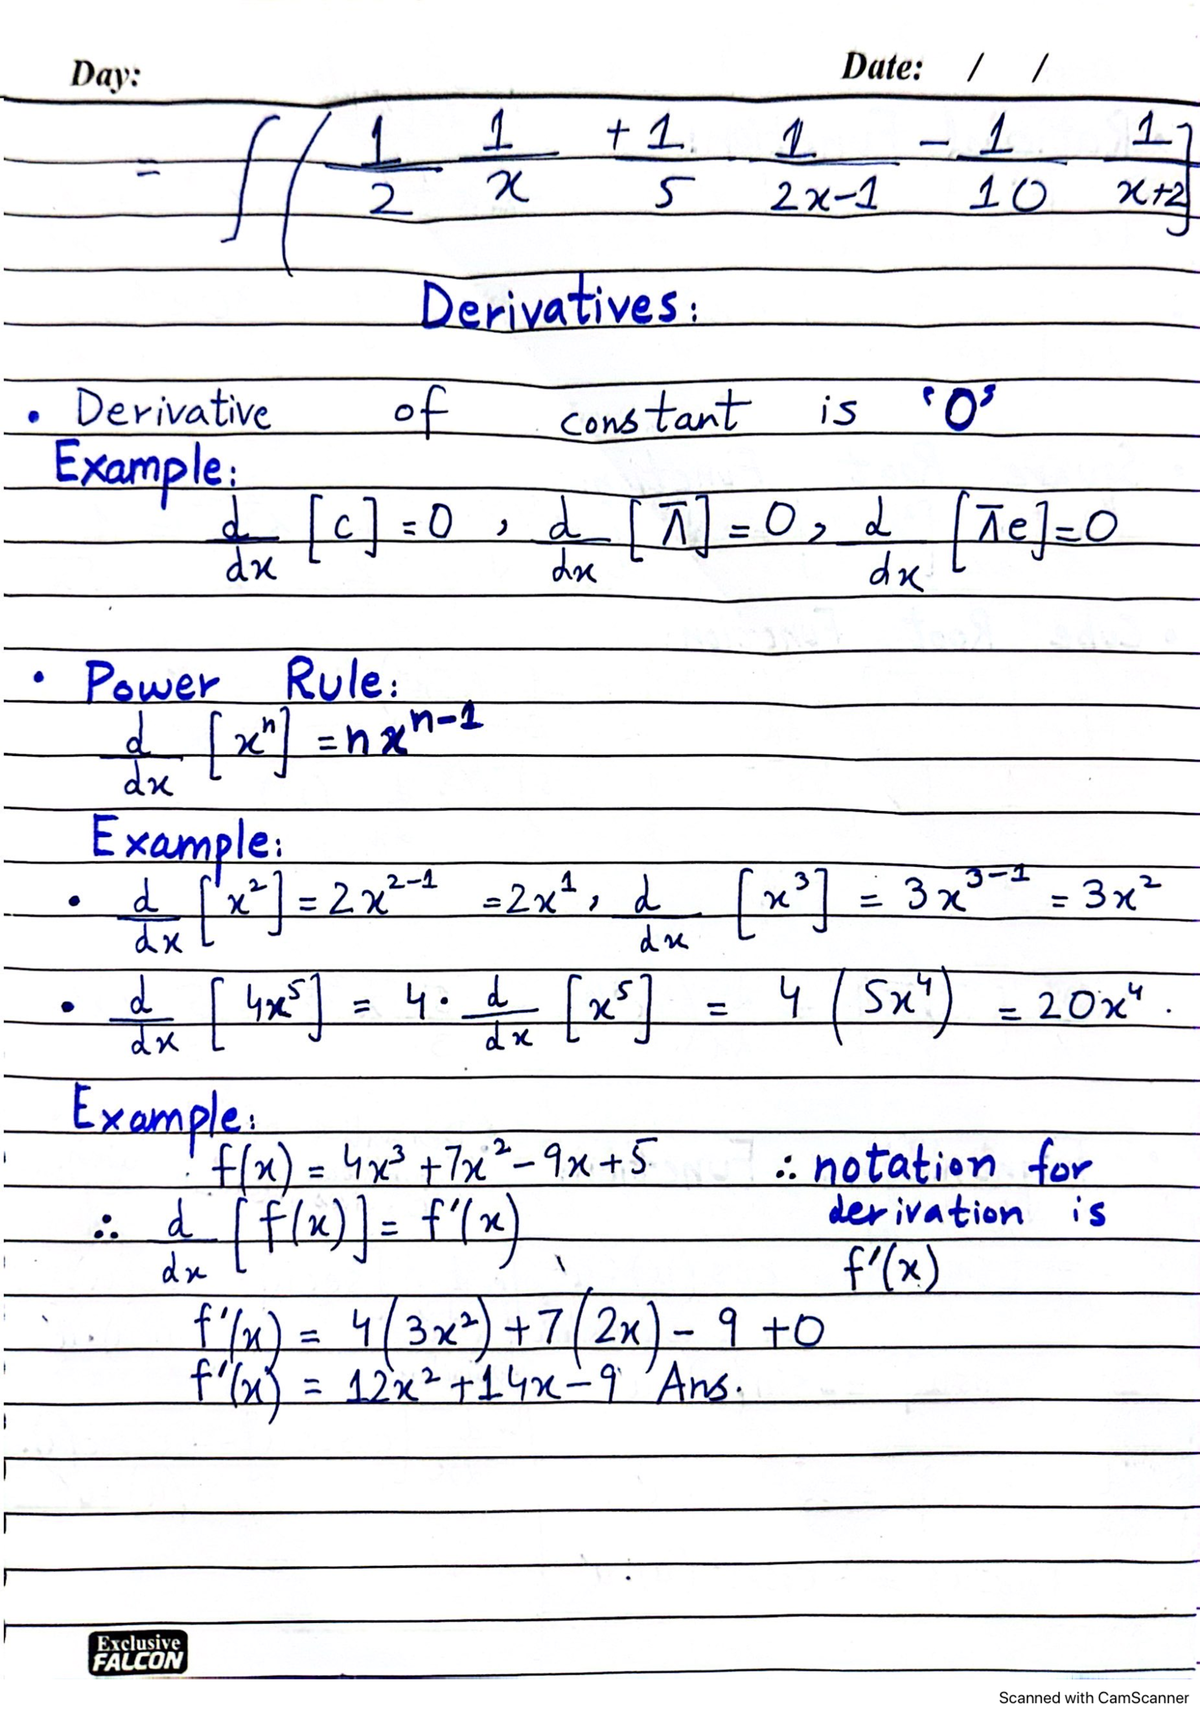 Day: Date: / /
= ∫ ( 1/2 1/x + 1/5 1/2x-1 - 1/10 1/x+2 ]
Derivatives:
• Derivative of constant is '0'
Example:
d/dx [c] = 0 , d/dx [π] = 0 , d/dx [πe] = 0
• Power Rule:
d/dx [xⁿ] = n xⁿ⁻¹
Example:
• d/dx [x²] = 2x²⁻¹ = 2x¹ , d/dx [x³] = 3x³⁻¹ = 3x²
• d/dx [4x⁵] = 4 · d/dx [x⁵] = 4 (5x⁴) = 20x⁴ .
Example:
f(x) = 4x³ + 7x² - 9x + 5 ∴ notation for
∴ d/dx [f(x)] = f'(x) derivation is
f'(x)
f'(x) = 4(3x²) + 7(2x) - 9 + 0
f'(x) = 12x² + 14x - 9 Ans.
Exclusive
FALCON
Scanned with CamScanner